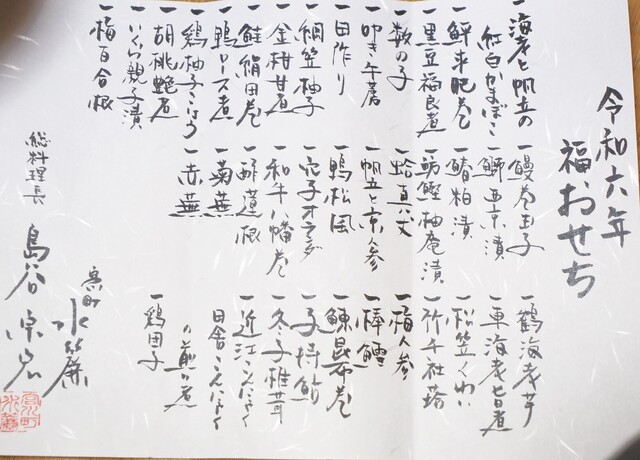 令和六年
福おせち
一海老と帆立の
紅白かまぼこ
一鮮平肥巻
一黒豆福良煮
一数の子
一叩き午蒡
一田作り
一網笠柚子
一金柑甘煮
一鮭絹田巻
一鴨ロース煮
一鶏柚子こしょう
一胡桃甘煮
一いくら親子漬
一梅百合根
一鰻巻玉子
一鰤西京漬
一鰆粕漬
一魴鰹柚庵漬
一蛤真丈
一帆立と京人参
一鴨松風
一穴子オランダ
一和牛八幡巻
一酢蓮根
一菊蕪
一赤蕪
一鶴海老芋
一車海老旨煮
一松笠くわい
一祈千社搭
一梅人参
一棒鱈
一鰊昆布巻
一子持鮎
一冬子椎茸
一近江こんにゃく
田舎こんにゃく
の煎り煮
一鶏団子
宮町 水簾
総料理長 島谷宗宏